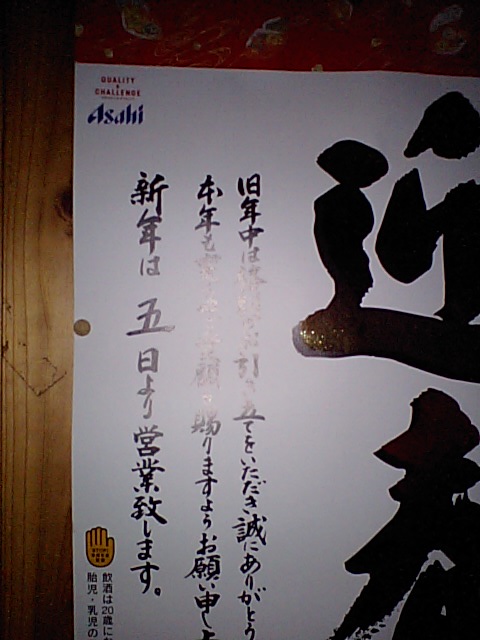 迎春
旧年中は 引き立てをいただき誠にありがとう
本年も 願 賜りますようお願い申し上
新年は 五日より営業致します。
QUALITY & CHALLENGE
Asahi
STOP!
飲酒は20歳に
胎児・乳児の